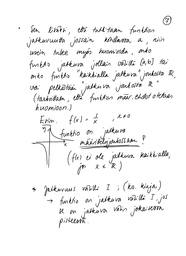 7
• Sen lisäksi, että tutkitaan funktion
jatkuvuutta jossain kohdassa a, niin
usein tulee myös huomioida, onko
funktio jatkuva jollain välillä (a,b) tai
onko funktio "kaikkialla jatkuva" joukossa ℝ,
vai pelkästään "jatkuva" joukossa ℝ
(tarkoittaen, että funktion määr.ehdot otetaan
huomioon.)
Esim. f(x) = 1/x , x≠0
funktio on jatkuva
määrittelyjoukossaan ?
(f(x) ei ole jatkuva kaikkialla,
jos x ∈ ℝ)
• Jatkuvuus välillä I ; (ks. kirja)
→ funktio on jatkuva välillä I, jos
se on jatkuva välin jokaisessa
pisteessä.